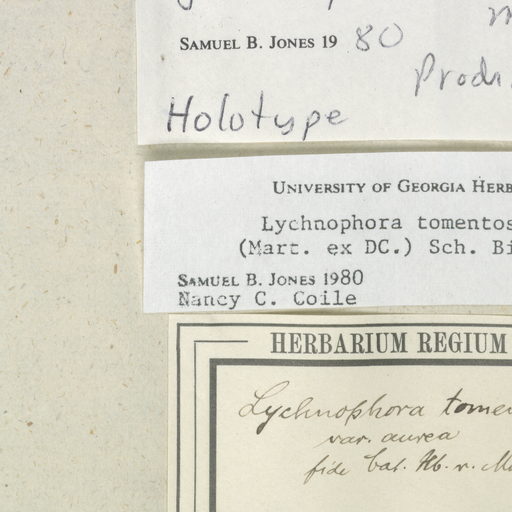 SAMUEL B. JONES 19 80
Prodr
Holotype
UNIVERSITY OF GEORGIA HERB
Lychnophora tomentos
(Mart. ex DC.) Sch. Bi
SAMUEL B. JONES 1980
Nancy C. Coile
HERBARIUM REGIUM
Lychnophora tomen
var. aurea
fide Cat. Hb. v. Ma